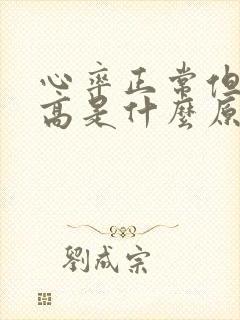 心率正常但
高是什麼原
劉成宗